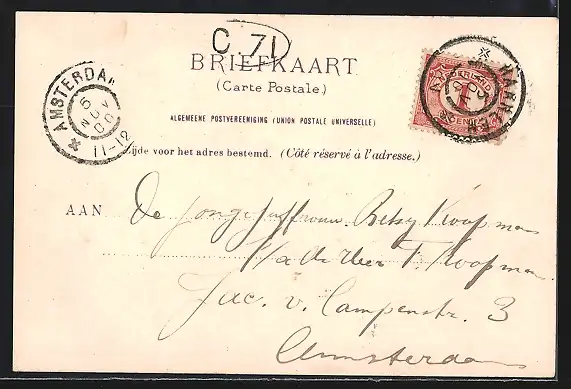 C 71
BRIEFKAART
(Carte Postale)
ALGEMEENE POSTVEREENIGING (UNION POSTALE UNIVERSELLE)
Zijde voor het adres bestemd. (Côté réservé à l'adresse.)
AMSTERDAM
5
NOV
00
11-12
HAARLEM
NEDERLAND
1
CENT
AAN De Jongejuffrouw Betsy Koopmans
p/a de Heer F. Koopmans
Jac. v. Campenstr. 3
Amsterdam